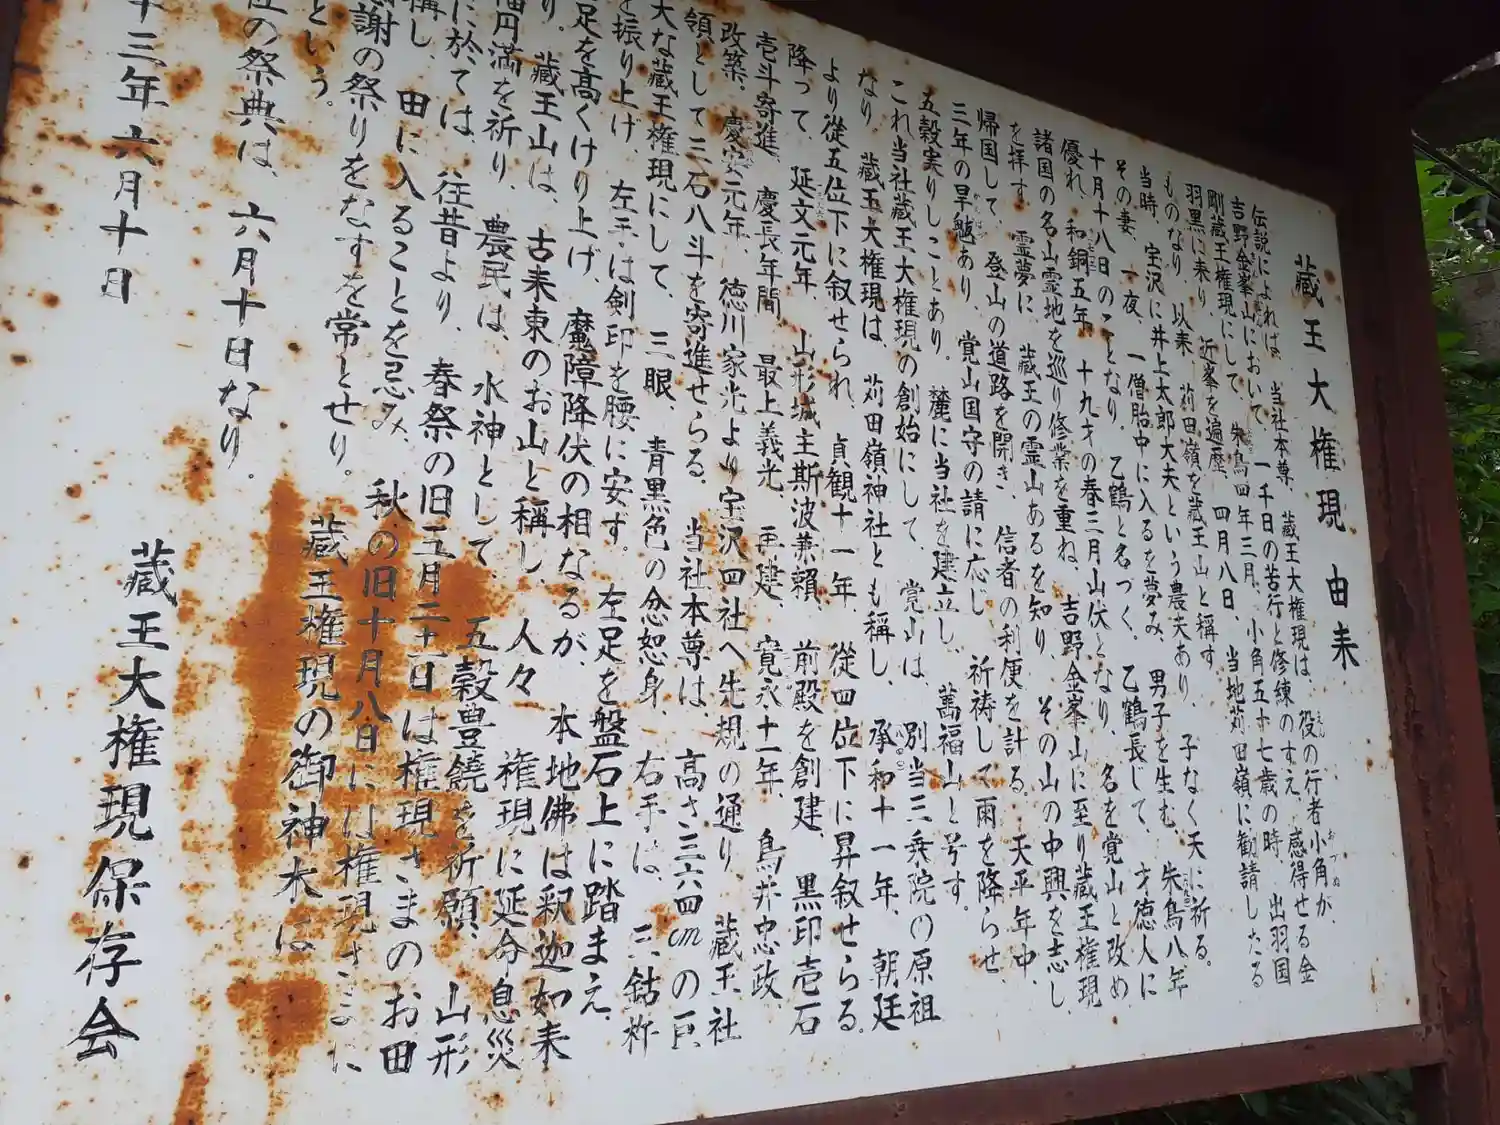 蔵王大権現由来
伝説によれば、当社本尊、蔵王大権現は、役の行者小角が、
吉野金峯山において、一千日の苦行と修練のすえ、感得せる金
剛蔵王権現にして、朱鳥四年三月、小角五十七歳の時、出羽国
羽黒に来り、近峯を遍歴、四月八日、当地苅田嶺に勧請したる
ものなり、以来、苅田嶺を蔵王山と稱す。
当時、宝沢に井上太郎大夫という農夫あり、子なく天に祈る。
その妻、一夜、一僧胎中に入るを夢み、男子を生む、朱鳥八年
十月十八日のことなり、乙鶴と名づく。乙鶴長じて、才徳人に
優れ、和銅五年、十九才の春三月山伏となり、名を覚山と改め
諸国の名山霊地を巡り修業を重ね、吉野金峯山に至り蔵王権現
を拝す。霊夢に、蔵王の霊山あるを知り、その山の中興を志し
帰国して、登山の道路を開き、信者の利便を計る。天平年中、
三年の旱魃あり、覚山国守の請に応じ、祈祷して雨を降らせ、
五穀実りしことあり。麓に当社を建立し、萬福山と号す。
これ当社蔵王大権現の創始にして、覚山は、別当三乗院の原祖
なり、蔵王大権現は、苅田嶺神社とも稱し、承和十一年、朝廷
より従五位下に叙せられ、貞観十一年、従四位下に昇叙せらる
降って、延文元年、山形城主斯波兼頼、前殿を創建、黒印壱石
壱斗寄進、慶長年間、最上義光、再建、寛永十一年、鳥井忠政、
改築。慶安元年、徳川家光より宝沢四社へ先規の通り、蔵王社
領として三石八斗を寄進せらる。当社本尊は、高さ三六四㎝の巨
大な蔵王権現にして、三眼、青黒色の忿怒身、右手は、三鈷杵
を振り上げ、左手は剣印を腰に安す。左足を盤石上に踏まえ、
足を高くけり上げ、魔障降伏の相なるが、本地佛は釈迦如来
り。蔵王山は、古来東のお山と稱し、人々、権現に延命息災
福円満を祈り、農民は、水神として、五穀豊饒を祈願、山形
に於ては、往昔より、春祭の旧五月二十一日は権現さまのお田
稱し、田に入ることを忌み、秋の旧十月八日には権現さまに
謝の祭りをなすを常とせり。蔵王権現の御神木は
という。
社の祭典は、六月十日なり。
十三年六月十日
蔵王大権現保存会